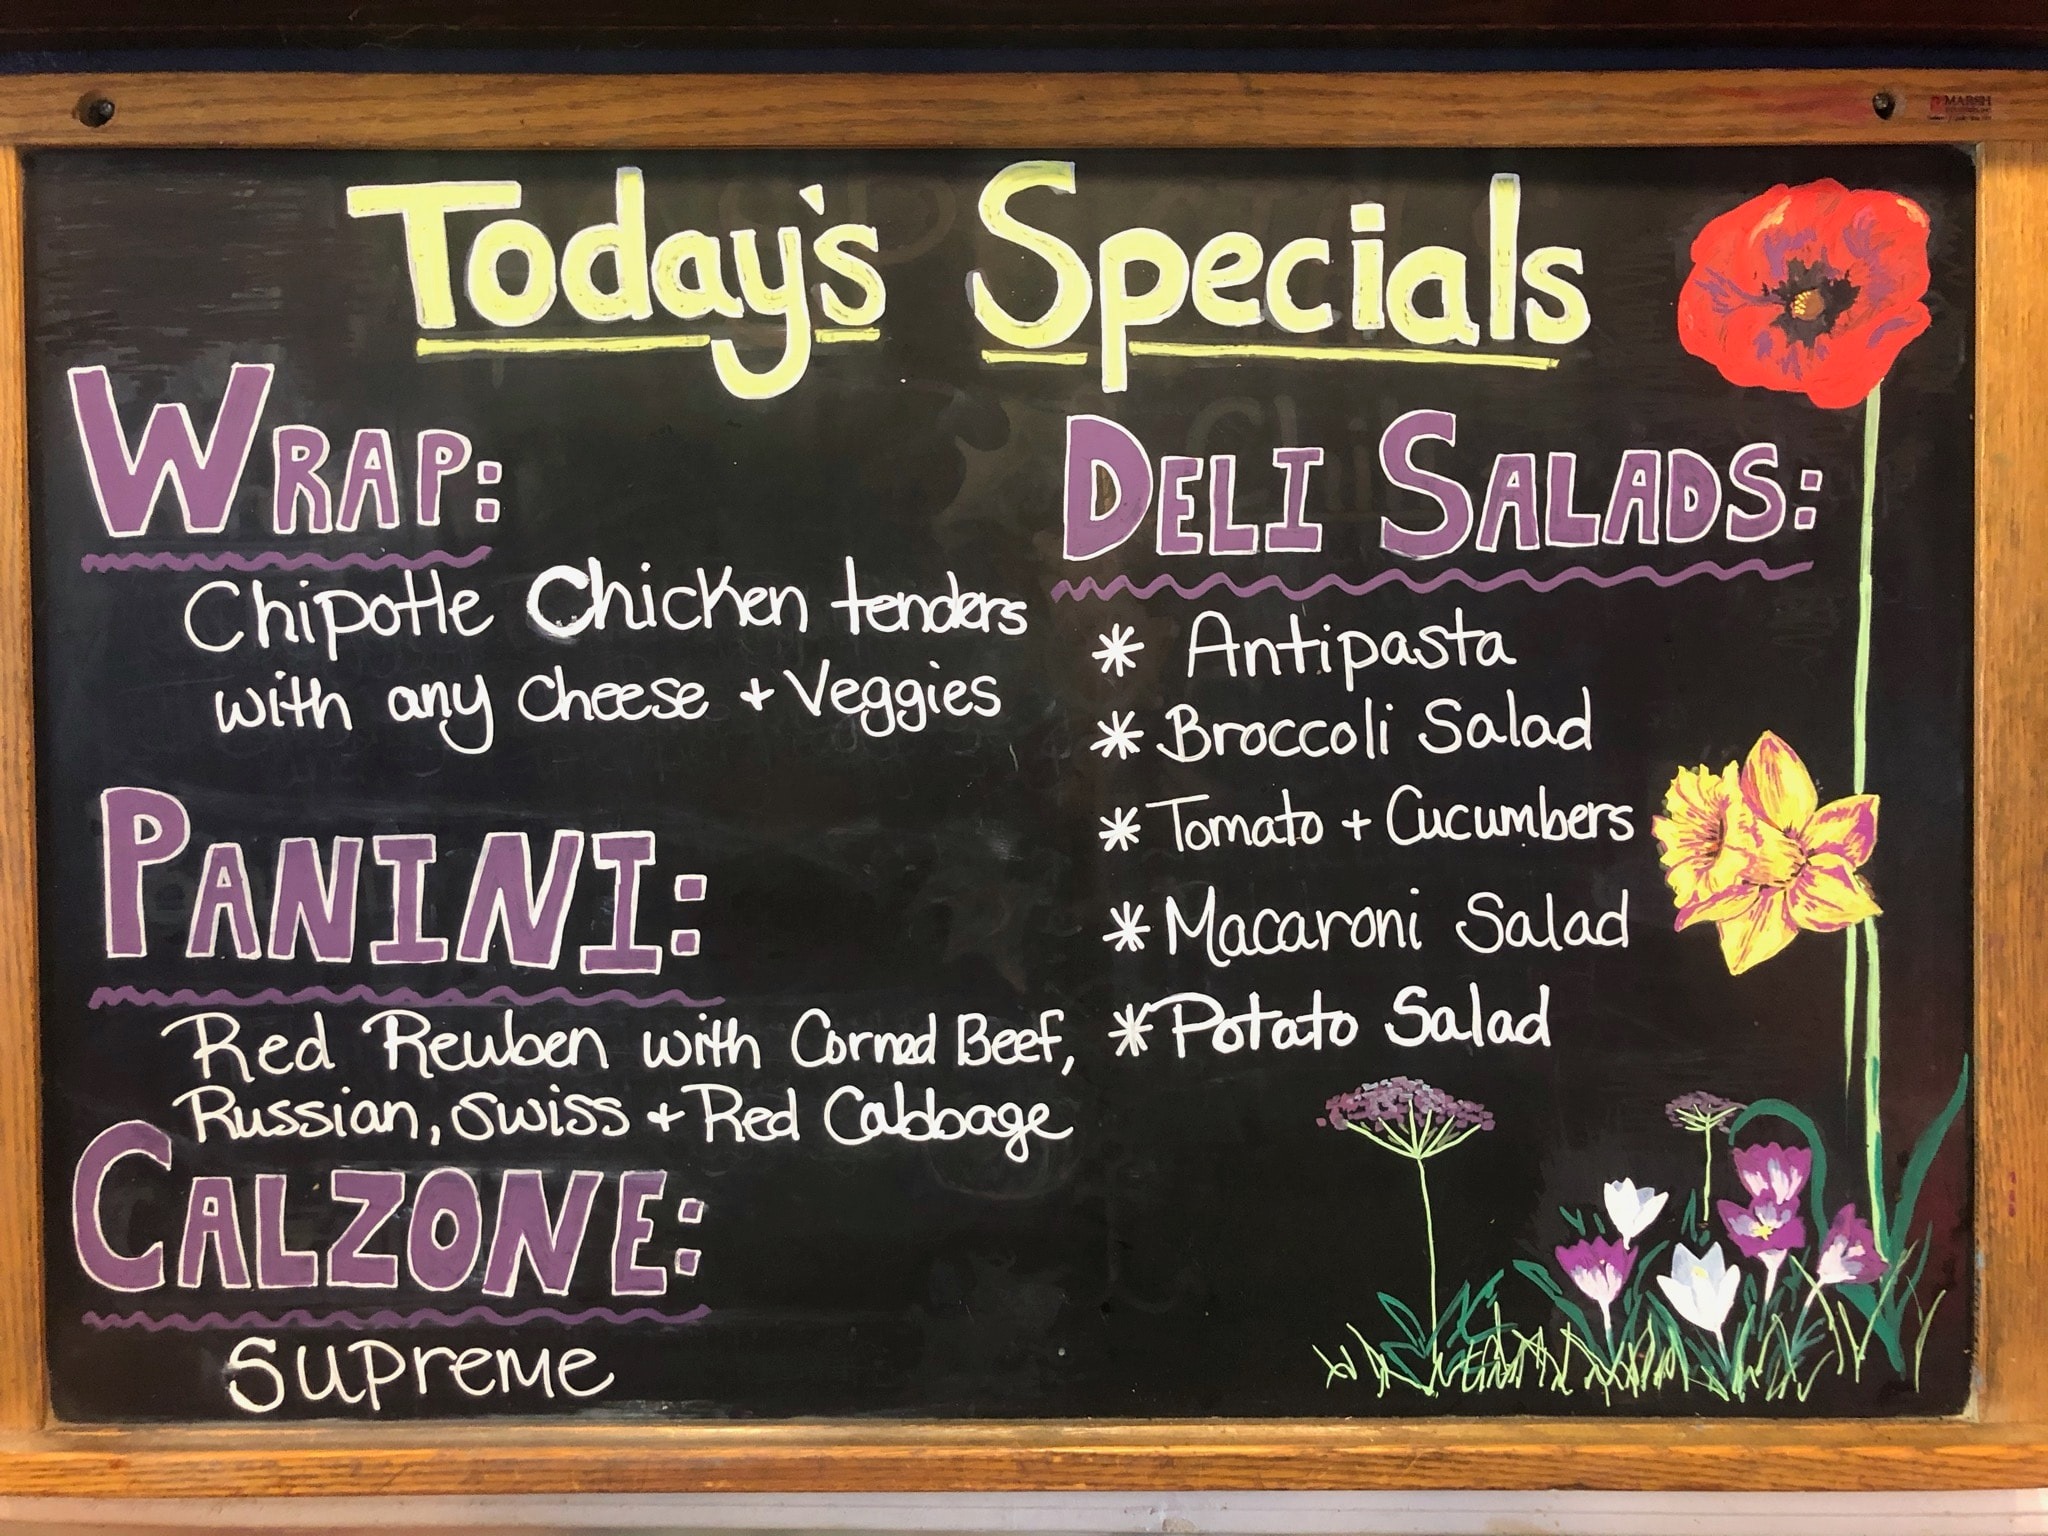 Today's Specials
WRAP:
Chipotle Chicken tenders
with any cheese + Veggies
PANINI:
Red Reuben with Corned Beef,
Russian, Swiss + Red Cabbage
CALZONE:
Supreme
DELI SALADS:
* Antipasta
* Broccoli Salad
* Tomato + Cucumbers
* Macaroni Salad
* Potato Salad
MARSH